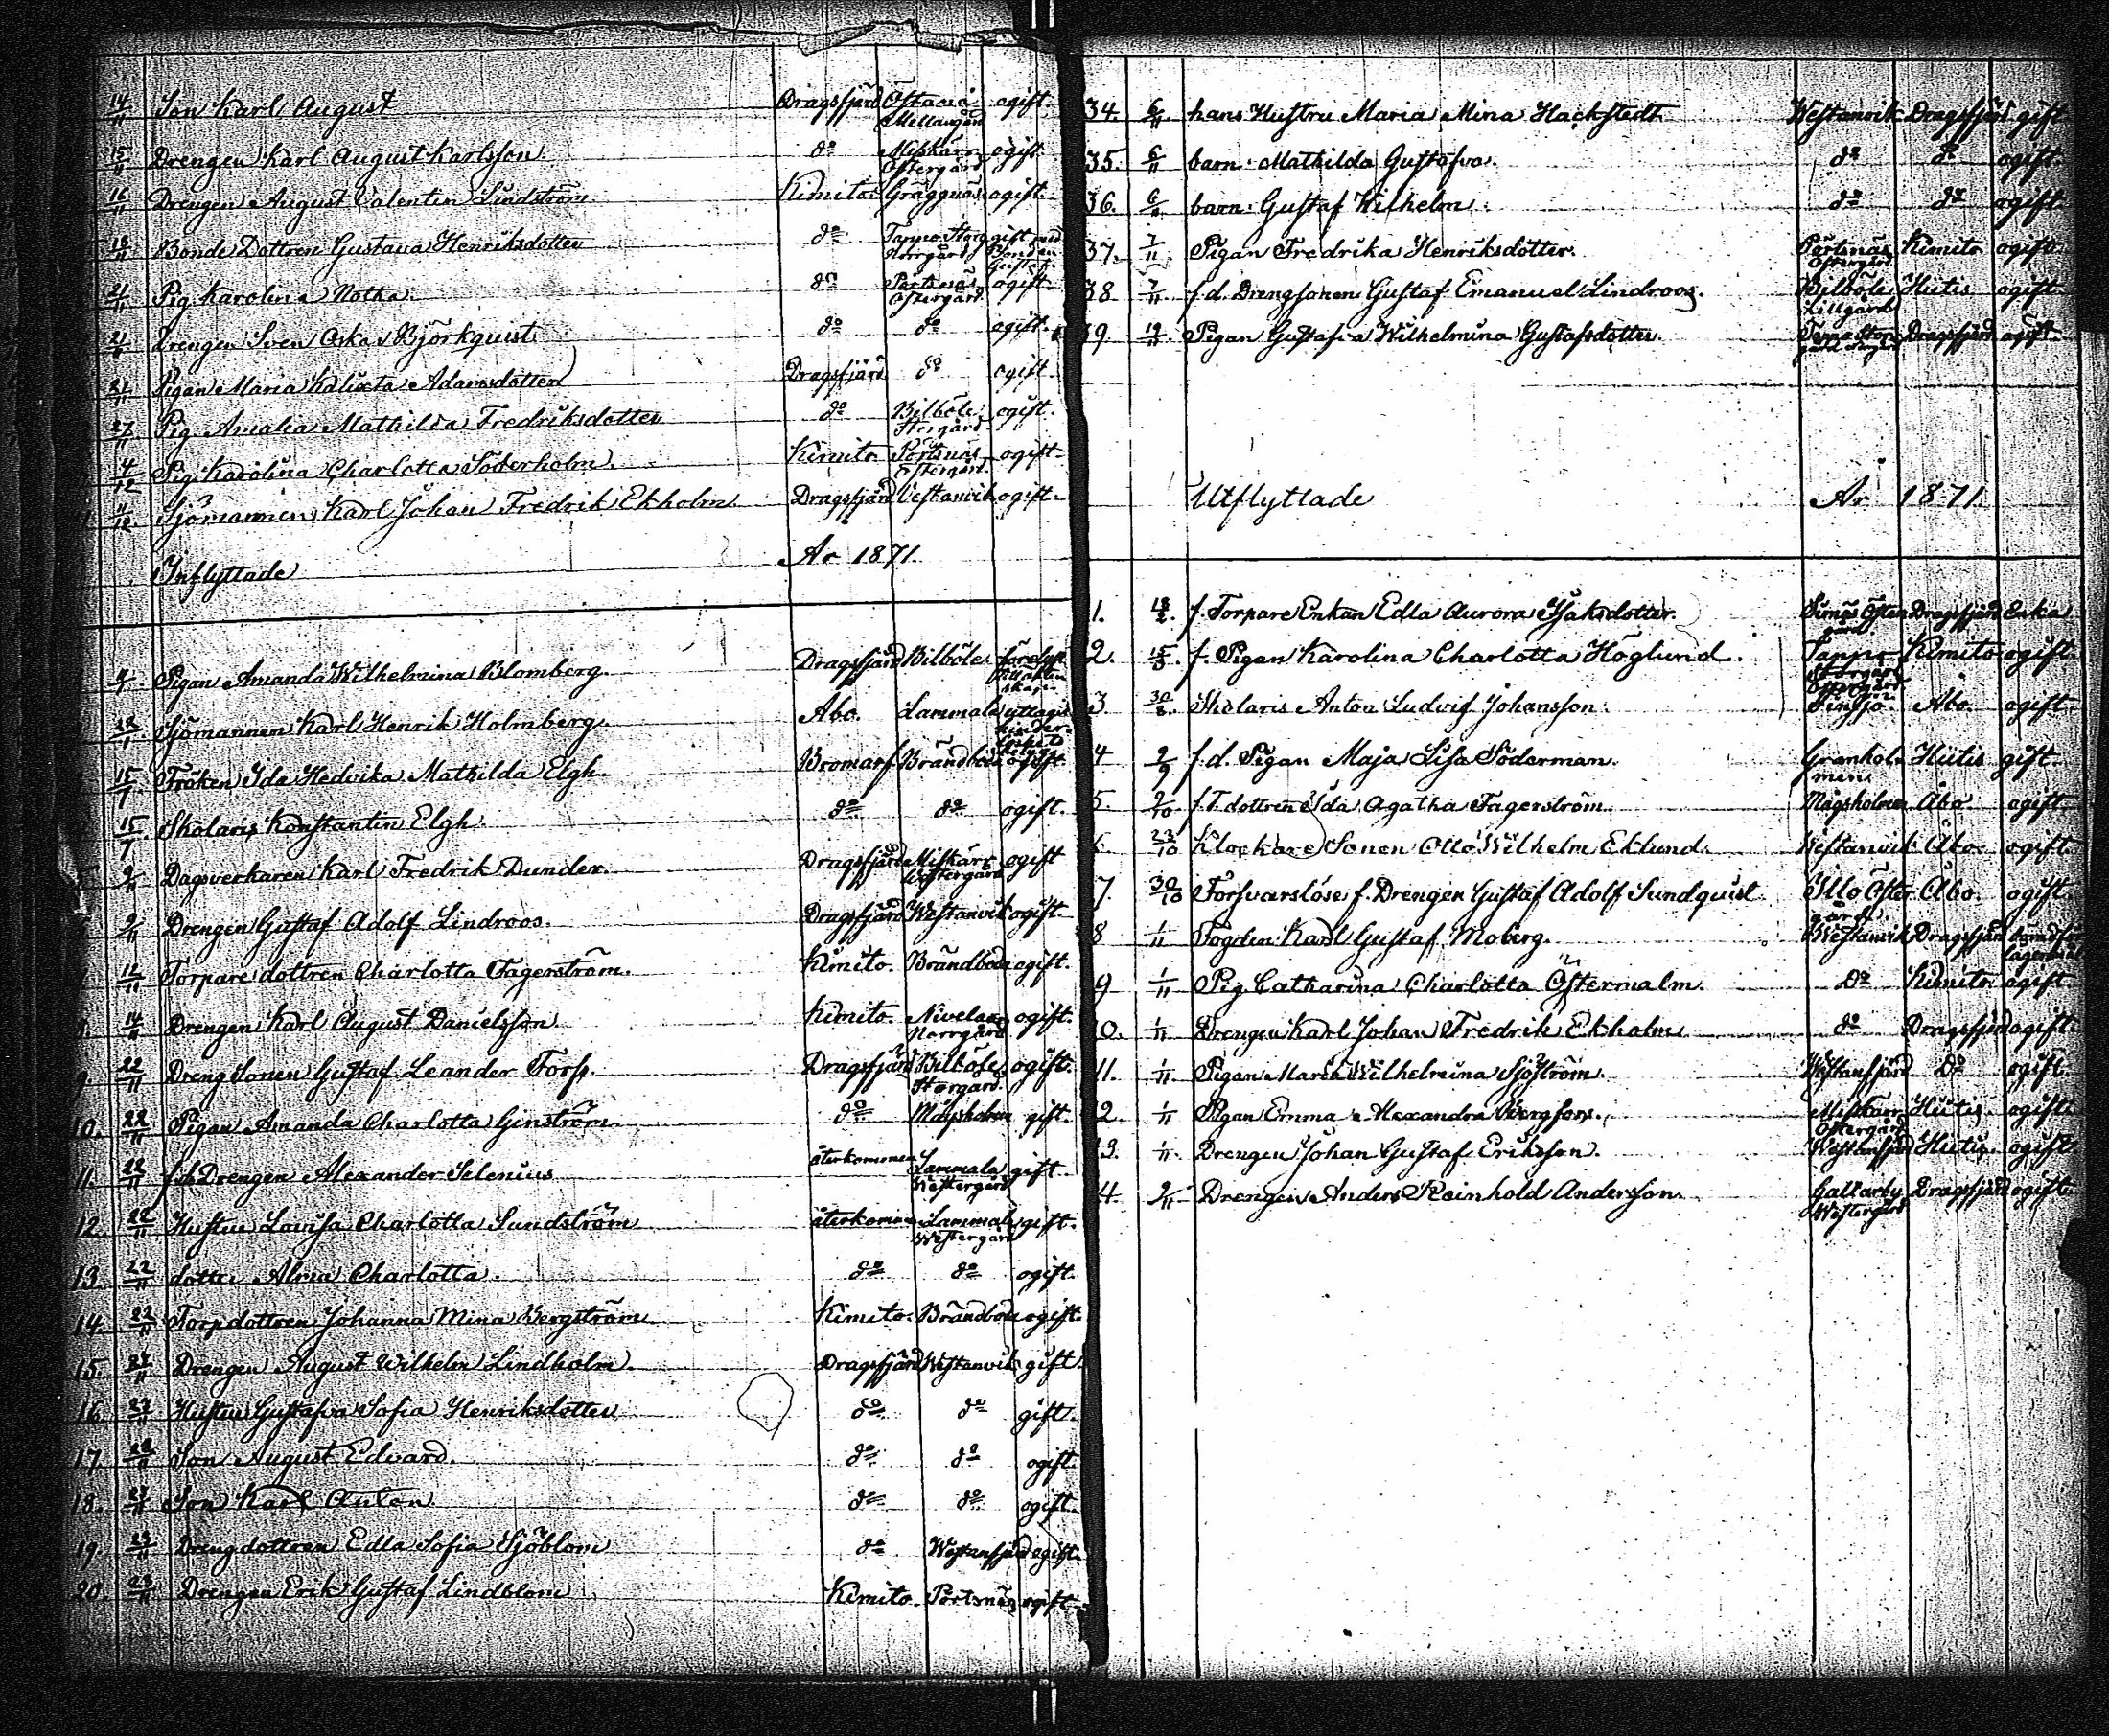 14/11 Son Karl August Dragsfjärd Östanå Mellangård ogift.
15/11 Drengen Karl August Karlsson do Misskärr Östergård ogift.
16/11 Drengen August Valentin Lindström Kimito Gräggnäs ogift.
18/11 Bonde Dottren Gustava Henriksdotter do Norrgård gift med Bonden
21/11 Pig. Karolina Notka do Pörtsnäs Östergård ogift.
21/11 Drengen Sven Oskar Björkquist do do ogift.
21/11 Pigan Maria Kalixta Adamsdotter Dragsfjärd do ogift
27/11 Pig. Amalia Mathilda Fredriksdotter do Bilböle Storgård ogift.
4/12 Pig. Karolina Charlotta Söderholm. Kimito Pörtsnäs Östergård ogift
11/12 Sjömannen Karl Johan Fredrik Ekholm Dragsfjärd Vestanvik ogift
Inflyttade Ar 1871.
Pigan Amanda Wilhelmina Blomberg. Dragsfjärd Bilböle
22/1 Sjömannen Karl Henrik Holmberg. Abo. Lammala
15/7 Fröken Ida Hedvika Mathilda Elgh. Bromarf Brändboda ogift.
15/7 Skolaris Konstantin Elgh do do ogift.
2/11 Dagsverkaren Karl Fredrik Dunder. Dragsfjärd Misskärr Westergård ogift
2/11 Drengen Gustaf Adolf Lindroos. Dragsfjärd Westanvik ogift.
12/11 Torpare dottren Charlotta Fagerström. Kimito. Brändboda ogift.
14/11 Drengen Karl August Danielsson Kimito. Nivelax Norrgård ogift.
9. 22/11 Dreng Sonen Gustaf Leander Forss. Dragsfjärd Bilböle Storgård ogift.
10. 22/11 Pigan Amanda Charlotta Ginström do Mågsholm gift.
11. 22/11 Drengen Alexander Selenius återkommen Lammala Westergård gift
12. 22/11 Hustru Lovisa Charlotta Sundström återkommen Lammala Westergård gift.
13. 22/11 dotter Alma Charlotta. do do ogift.
14. 22/11 Torpdottren Johanna Mina Bergström Kimito. Brändboda ogift.
15. 27/11 Drengen August Wilhelm Lindholm. Dragsfjärd Westanvik gift.
16 27/11 Hustru Gustafva Sofia Henriksdotter do do gift.
17. Son August Edvard. do do ogift.
18. Son Karl Anton do do ogift.
19. 23/11 Drengdottren Edla Sofia Sjöblom do Westanfjärd ogift.
20. 23/11 Drengen Erik Gustaf Lindblom Kimito Pörtsnäs ogift.
34. 6/11 hans Hustru Maria Mina Hackstedt Westanvik Dragsfjärd gift
35. 6/11 barn. Mathilda Gustafva. do do ogift.
36. 6/11 barn. Gustaf Wilhelm do do ogift.
37. 7/11 Pigan Fredrika Henriksdotter. Pörtsnäs Östergård Kimito ogift.
38 7/11 f.d. Drengsonen Gustaf Emanuel Lindroos. Bilböle Lillgård Hiitis ogift.
39. Pigan Gustafva Wilhelmina Gustafsdotter. Dragsfjärd ogift.
Utflyttade Ar 1871.
1. 18/2. f. Torpare Enkan Edla Aurora Isaksdotter. Dragsfjärd Enka
2. 15/8. f. Pigan Karolina Charlotta Höglund. Tappo Kimito ogift.
3 30/8. Skolaris Anton Ludvig Johansson. Åbo. ogift.
4 2/9 f.d. Pigan Maja Lisa Söderman. Granholmen Hiitis gift.
5. 2/10. f. T. dottren Ida Agatha Fagerström. Mågsholm Åbo ogift
6. 23/10 Klockare Sonen Otto Wilhelm Eklund. Westanvik Åbo. ogift.
7. 30/10 Försvarslöse f. Drengen Gustaf Adolf Sundquist Illo Östergård Åbo. ogift
8 1/11 Fogden Karl Gustaf Moberg. Westanvik Dragsfjärd
9 1/11 Pig. Catharina Charlotta Östermalm do Kimito ogift
10. 1/11 Drengen Karl Johan Fredrik Ekholm do Dragsfjärd ogift.
11. 1/11 Pigan Maria Wilhelmina Sjöström. Westanfjärd do ogift.
12. 1/11 Pigan Emma Alexandra Bergfors. Misskärr Östergård Hiitis ogift.
13. 1/11. Drengen Johan Gustaf Eriksson. Westanfjärd Hiitis. ogift.
14. 2/11 Drengen Anders Reinhold Andersson. Galtarby Westergård Dragsfjärd ogift.